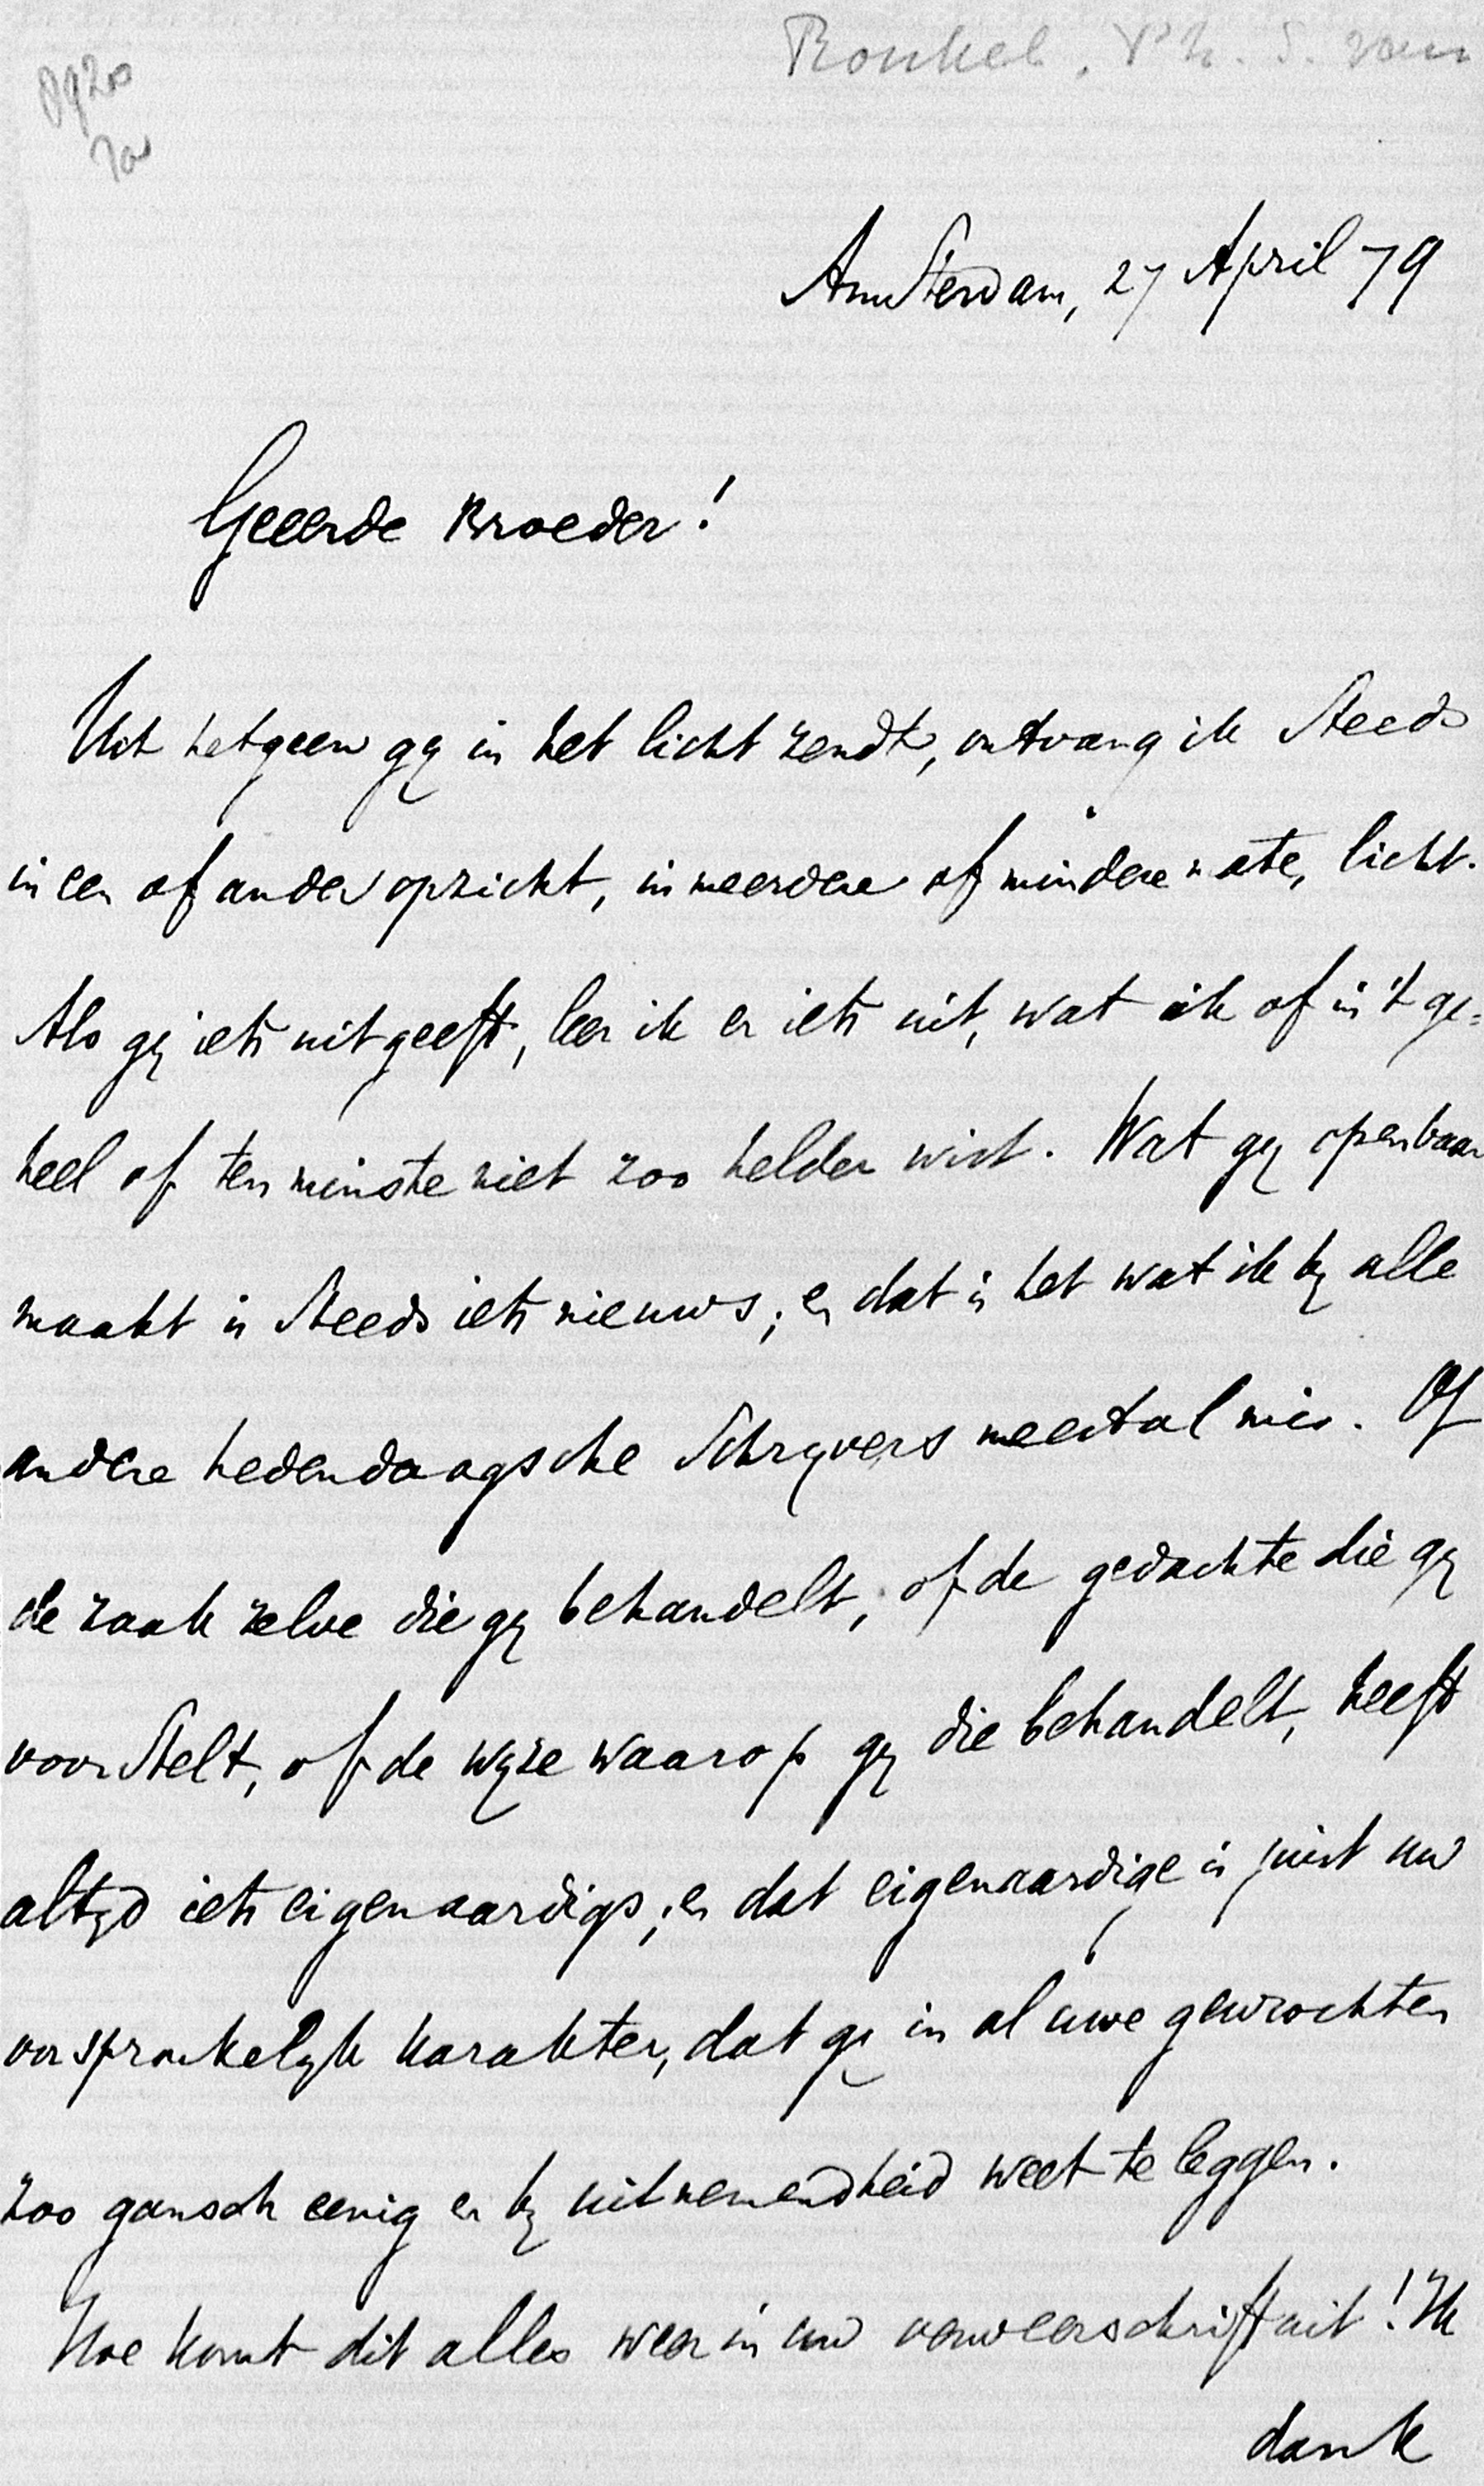 Ronkel, Ph. S. van
Amsterdam, 27 April 79
Geeerde Broeder!
Uit hetgeen gij in het licht zendt, ontvang ik steeds
in een of ander opzicht, in meerdere of mindere mate, licht.
Als gij iets uitgeeft, leer ik er iets uit, wat ik of in 't ge=
heel of ten minste niet zoo helder wist. Wat gij openbaar
maakt is steeds iets nieuws; en dat is het wat ik bij alle
andere hedendaagsche schrijvers meestal mis. Of
de zaak zelve die gij behandelt, of de gedachte die gij
voorstelt, of de wijze waarop gij die behandelt, heeft
altijd iets eigenaardigs; en dat eigenaardige is juist uw
oorspronkelijk karakter, dat gij in al uwe gewrochten
zoo gansch eenig en bij uitnemendheid weet te leggen.
Hoe komt dit alles weer in uw verweerschrift uit! Ik
dank